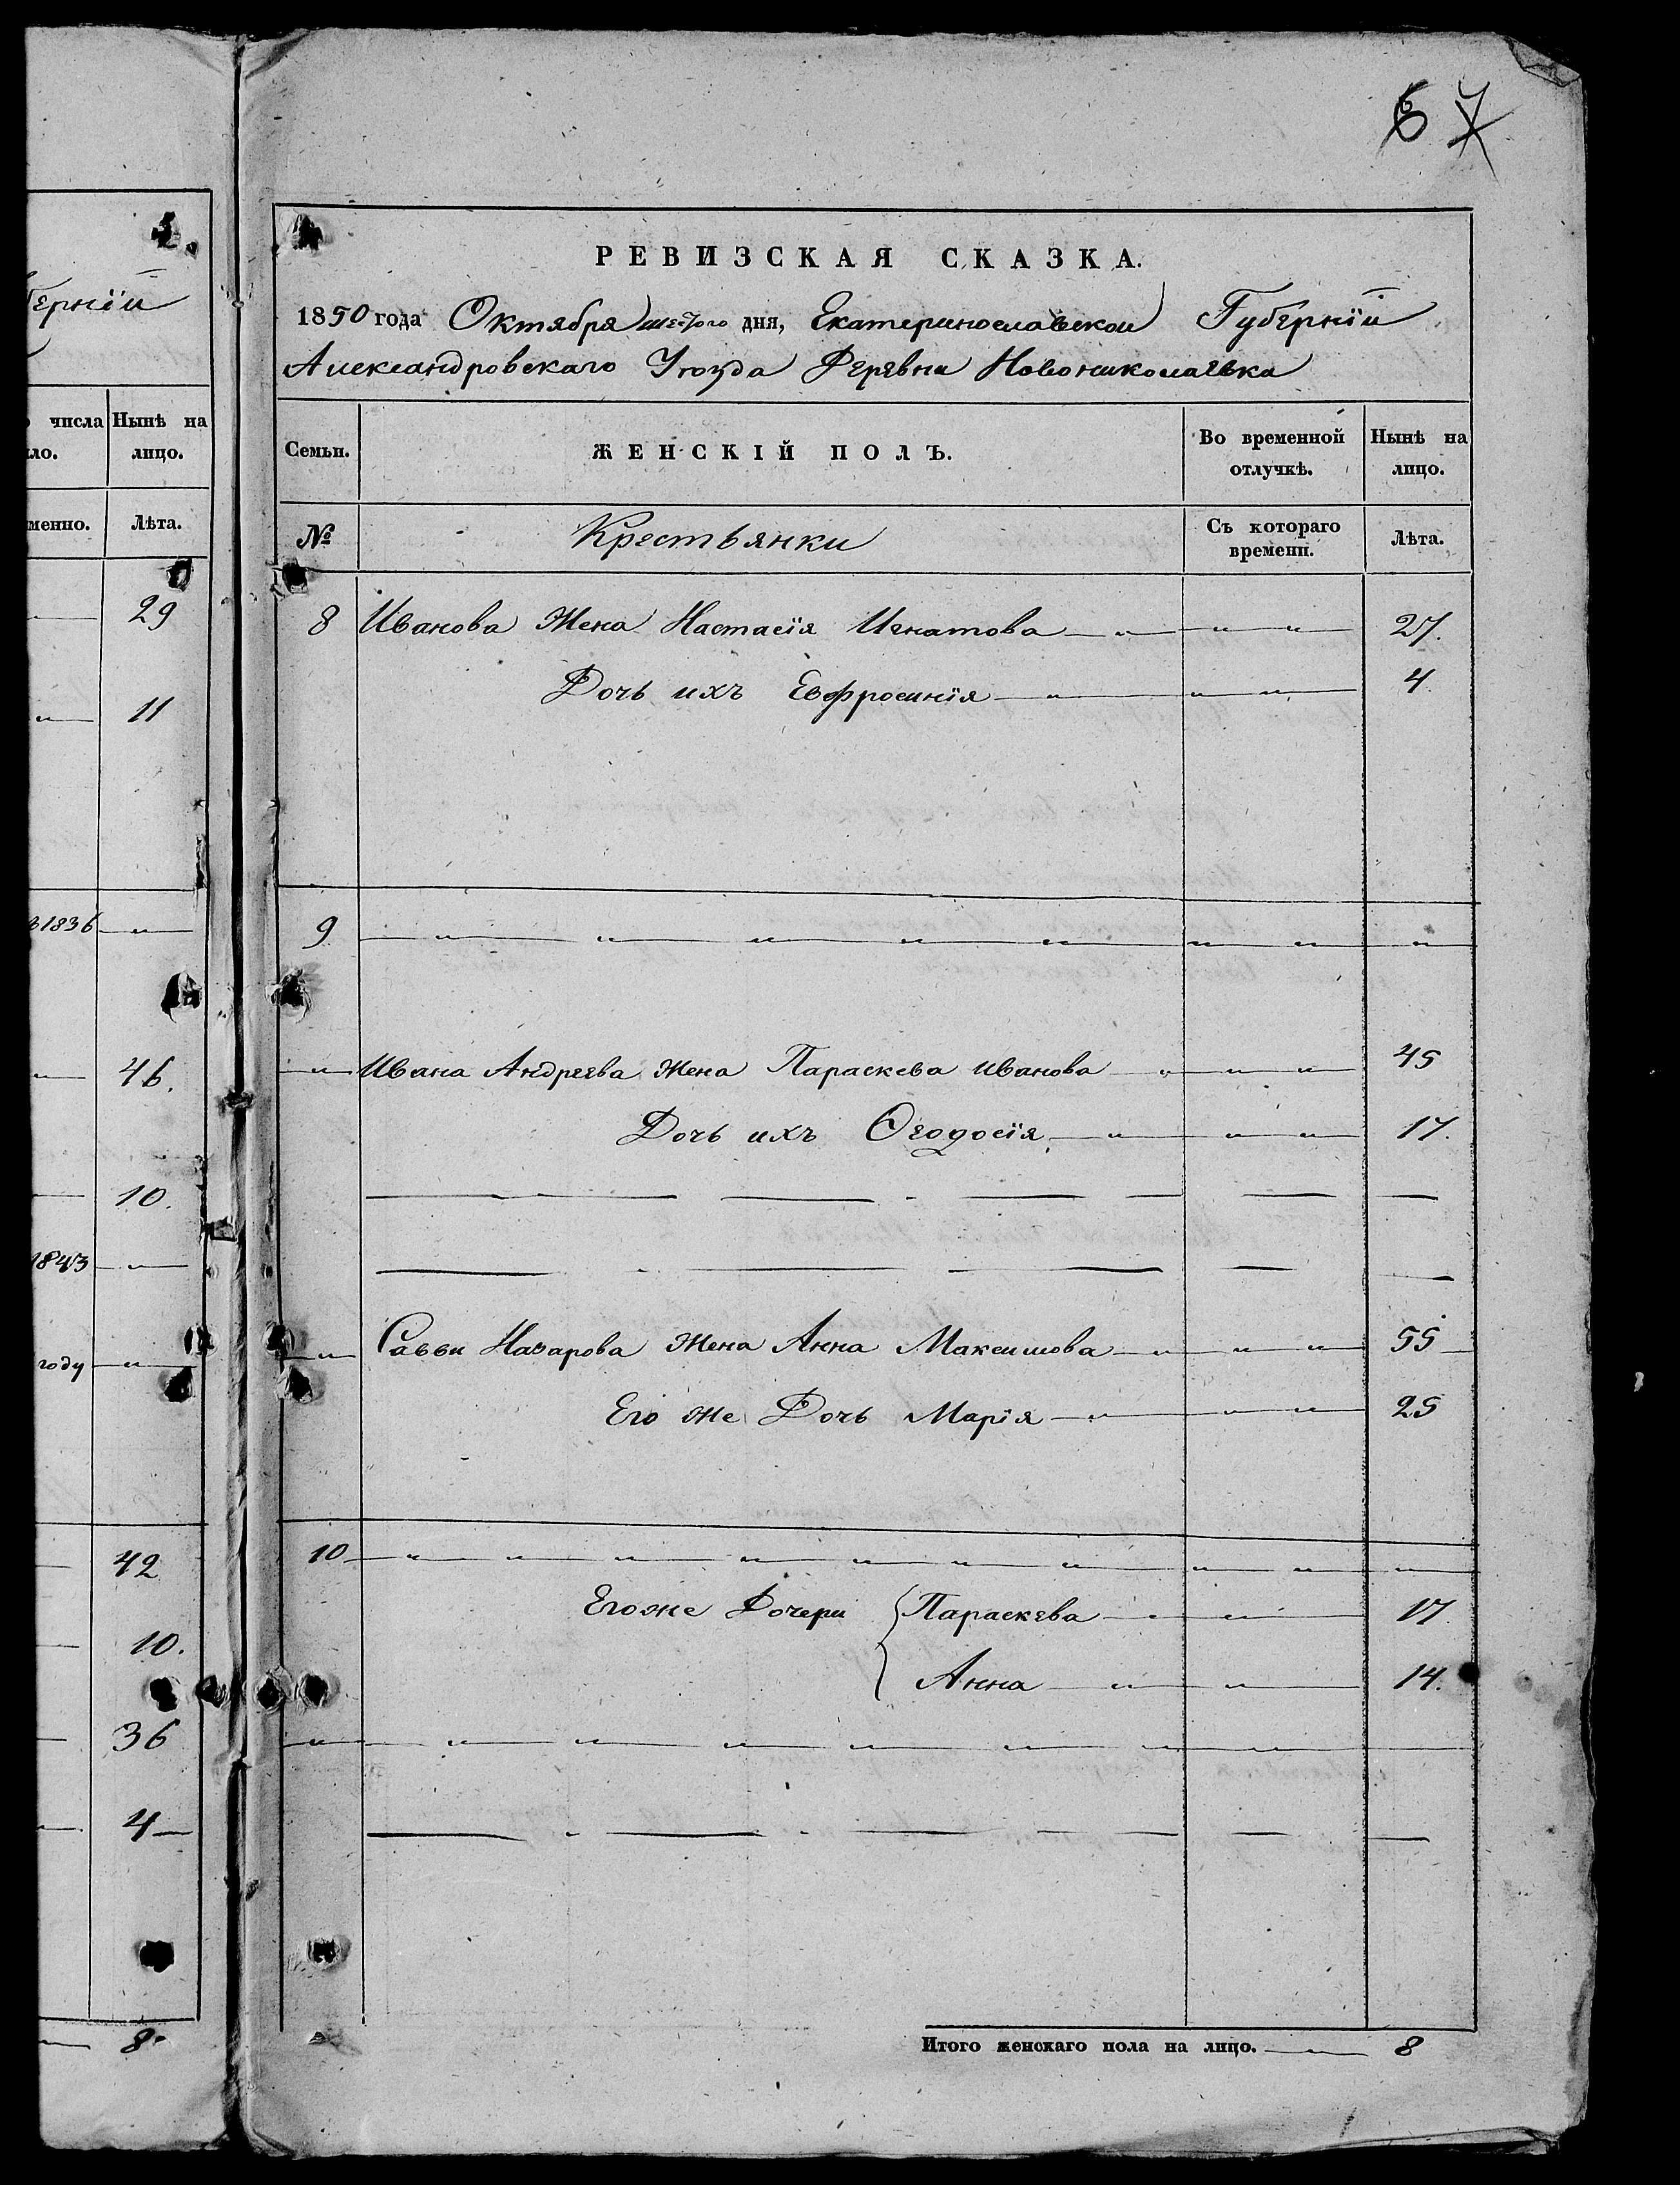 6 7
2.
губерніи
числа Нынѣ на
ло. лицо.
менно. Лѣта.
29
11
1836
46.
10.
1843
году
42
10.
36
4
8
РЕВИЗСКАЯ СКАЗКА.
1850 года Октября шестого дня, Екатеринославской Губерніи
Александровскаго Уѣзда Деревни Новониколаевка
Семьи. ЖЕНСКІЙ ПОЛЪ. Во временной отлучкѣ. Нынѣ на лицо.
№ Крестьянки Съ котораго времени. Лѣта.
8 Иванова Жена Настасія Игнатова — " — " — " — 27.
Дочь ихъ Евфросинія — " — " — " — 4
9 — " — " — " — " — " — " — " — " —
" Ивана Андреева жена Параскева Иванова — " — " — " — 45
Дочь ихъ Ѳеодосія — " — " — " — 17.
" Саввы Назарова жена Анна Максимова — " — " — " — 55
Его же Дочь Марія — " — " — " — 25
10 — " — " — " — " — " — " — " — " — " —
Егоже Дочери Параскева — " — " — 17.
Анна — " — " — 14.
" — " — " — " — " — " — " — " —
Итого женскаго пола на лицо. — 8